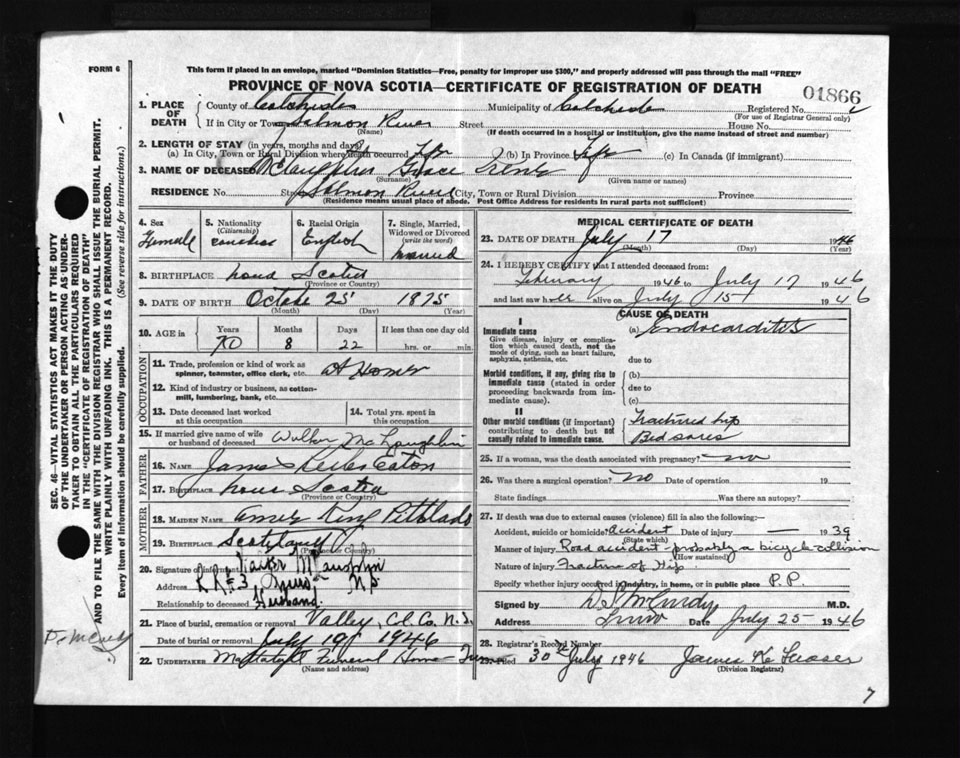 FORM 6
This form if placed in an envelope, marked "Dominion Statistics—Free, penalty for improper use $300," and properly addressed will pass through the mail "FREE"
PROVINCE OF NOVA SCOTIA—CERTIFICATE OF REGISTRATION OF DEATH
01866
1. PLACE OF DEATH County of Colchester Municipality of Colchester Registered No.
(For use of Registrar General only)
If in City or Town Salmon River Street House No.
(Name) (If death occurred in a hospital or institution, give the name instead of street and number)
2. LENGTH OF STAY (in years, months and days)
(a) In City, Town or Rural Division where death occurred (b) In Province (c) In Canada (if immigrant)
3. NAME OF DECEASED McLaughlin Grace Irene
(Surname) (Given name or names)
RESIDENCE No. St. Salmon River City, Town or Rural Division Province
(Residence means usual place of abode. Post Office Address for residents in rural parts not sufficient)
4. Sex 5. Nationality (Citizenship) 6. Racial Origin 7. Single, Married, Widowed or Divorced (write the word)
Female Canadian English Married
8. BIRTHPLACE Nova Scotia
(Province or Country)
9. DATE OF BIRTH Octobe 25 1875
(Month) (Day) (Year)
10. AGE in Years Months Days If less than one day old
70 8 22 hrs. or min.
OCCUPATION
11. Trade, profession or kind of work as spinner, teamster, office clerk, etc. At Home
12. Kind of industry or business, as cotton-mill, lumbering, bank, etc.
13. Date deceased last worked at this occupation 14. Total yrs. spent in this occupation
15. If married give name of wife or husband of deceased Walker McLoughlin
FATHER
16. NAME James Eaton
17. Birthplace Nova Scotia
(Province or Country)
MOTHER
18. MAIDEN NAME King Pitblado
19. BIRTHPLACE Scotland
(Province or Country)
20. Signature of informant
Address R R #3 Truro N.S.
Relationship to deceased Husband
21. Place of burial, cremation or removal Valley, Col. Co. N.S.
Date of burial or removal July 19, 1946
22. UNDERTAKER Funeral Home Truro
(Name and address)
MEDICAL CERTIFICATE OF DEATH
23. DATE OF DEATH July 17 1946
(Month) (Day) (Year)
24. I HEREBY CERTIFY that I attended deceased from:
February 1946 to July 17 1946
and last saw her alive on July 15 1946
CAUSE OF DEATH
I
Immediate cause (a) Endocarditis
Give disease, injury or complication which caused death, not the mode of dying, such as heart failure, asphyxia, asthenia, etc.
due to
Morbid conditions, if any, giving rise to immediate cause (stated in order proceeding backwards from immediate cause). (b)
due to
(c)
II
Other morbid conditions (if important) contributing to death but not causally related to immediate cause.
Fractured hip
Bed sores
25. If a woman, was the death associated with pregnancy? no
26. Was there a surgical operation? no Date of operation 19
State findings Was there an autopsy?
27. If death was due to external causes (violence) fill in also the following:
Accident, suicide or homicide? accident Date of injury — 1939
(State which)
Manner of injury Road accident - probably a bicycle collision
(How sustained)
Nature of injury Fracture of Hip
Specify whether injury occurred in industry, in home, or in public place P. P.
Signed by D.S. McCurdy M.D.
Address Truro Date July 25 1946
28. Registrar's Record Number
29. Filed 30th July 1946 James K Fraser
(Division Registrar)
SEC. 46—VITAL STATISTICS ACT MAKES IT THE DUTY OF THE UNDERTAKER OR PERSON ACTING AS UNDERTAKER TO OBTAIN ALL THE PARTICULARS REQUIRED IN THE "CERTIFICATE OF REGISTRATION OF DEATH" AND TO FILE THE SAME WITH THE DIVISION REGISTRAR WHO SHALL ISSUE THE BURIAL PERMIT.
WRITE PLAINLY WITH UNFADING INK. THIS IS A PERMANENT RECORD.
Every item of information should be carefully supplied. (See reverse side for instructions.)
7